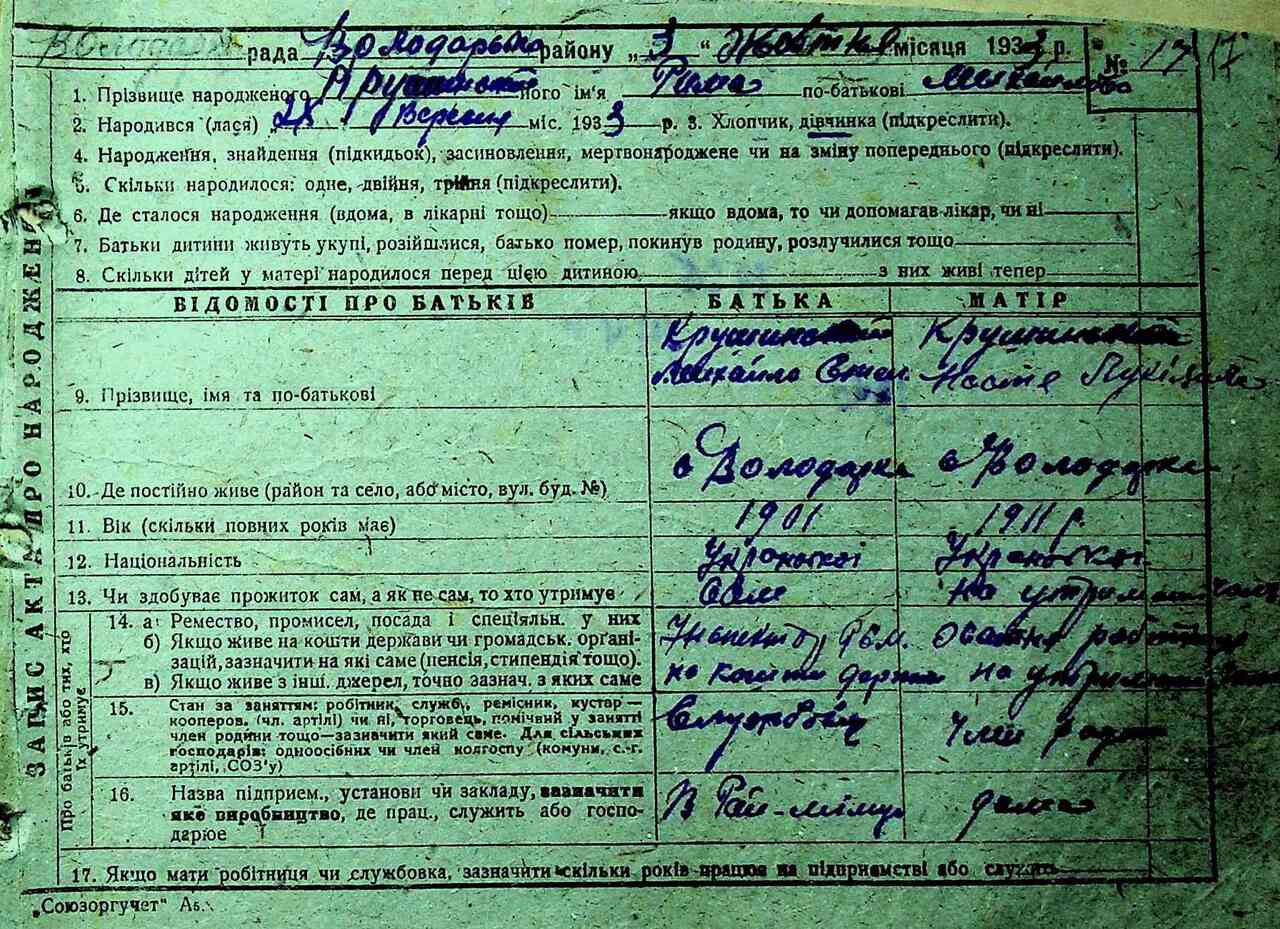 Володарська рада Володарського району „3“ Жовтня місяця 1933 р. № 17 17
1. Прізвище народженого його ім'я Рима по-батькові Михайлова
2. Народився (лася) 28 Вересня міс. 1933 р. 3. Хлопчик, дівчинка (підкреслити).
4. Народження, знайдення (підкидьок), засиновлення, мертвонароджене чи на зміну попереднього (підкреслити).
5. Скільки народилося: одне, двійня, трійня (підкреслити).
6. Де сталося народження (вдома, в лікарні тощо) якщо вдома, то чи допомагав лікар, чи ні
7. Батьки дитини живуть укупі, розійшлися, батько помер, покинув родину, розлучилися тощо
8. Скільки дітей у матері народилося перед цією дитиною з них живі тепер
ВІДОМОСТІ ПРО БАТЬКІВ БАТЬКА МАТІР
9. Прізвище, імя та по-батькові
Михайло Настя
10. Де постійно живе (район та село, або місто, вул. буд. №) с Володарка с Володарка
11. Вік (скільки повних років має) 1901 1911 р.
12. Національність
13. Чи здобуває прожиток сам, а як не сам, то хто утримує Сам На утриман
14. а) Ремество, промисел, посада і спеціяльн. у них
б) Якщо живе на кошти держави чи громадськ. органі-
зацій, зазначити на які саме (пенсія, стипендія тощо).
в) Якщо живе з інші. джерел, точно зазнач. з яких саме
на кошти держави на утриман
15. Стан за заняттям: робітник, службs, ремісник, кустар —
кооперов. (чл. артілі) чи ні, торговець, помічний у занятті
член родини тощо—зазначити який саме. Для сільських
господарів: одноосібних чи член колгоспу (комуни, с.-г.
артілі, СОЗ'у)
Службовец
16. Назва підприєм., установи чи закладу, зазначити
яке виробництво, де прац., служить або госпо-
дарює
В Рай-міліц дома
17. Якщо мати робітниця чи службовка, зазначити скільки років працює на підприємстві або служить
„Союзоргучет“ Аб.
ЗАПИС АКТА ПРО НАРОДЖЕННЯ
Про батьків або тих, хто
їх утримує